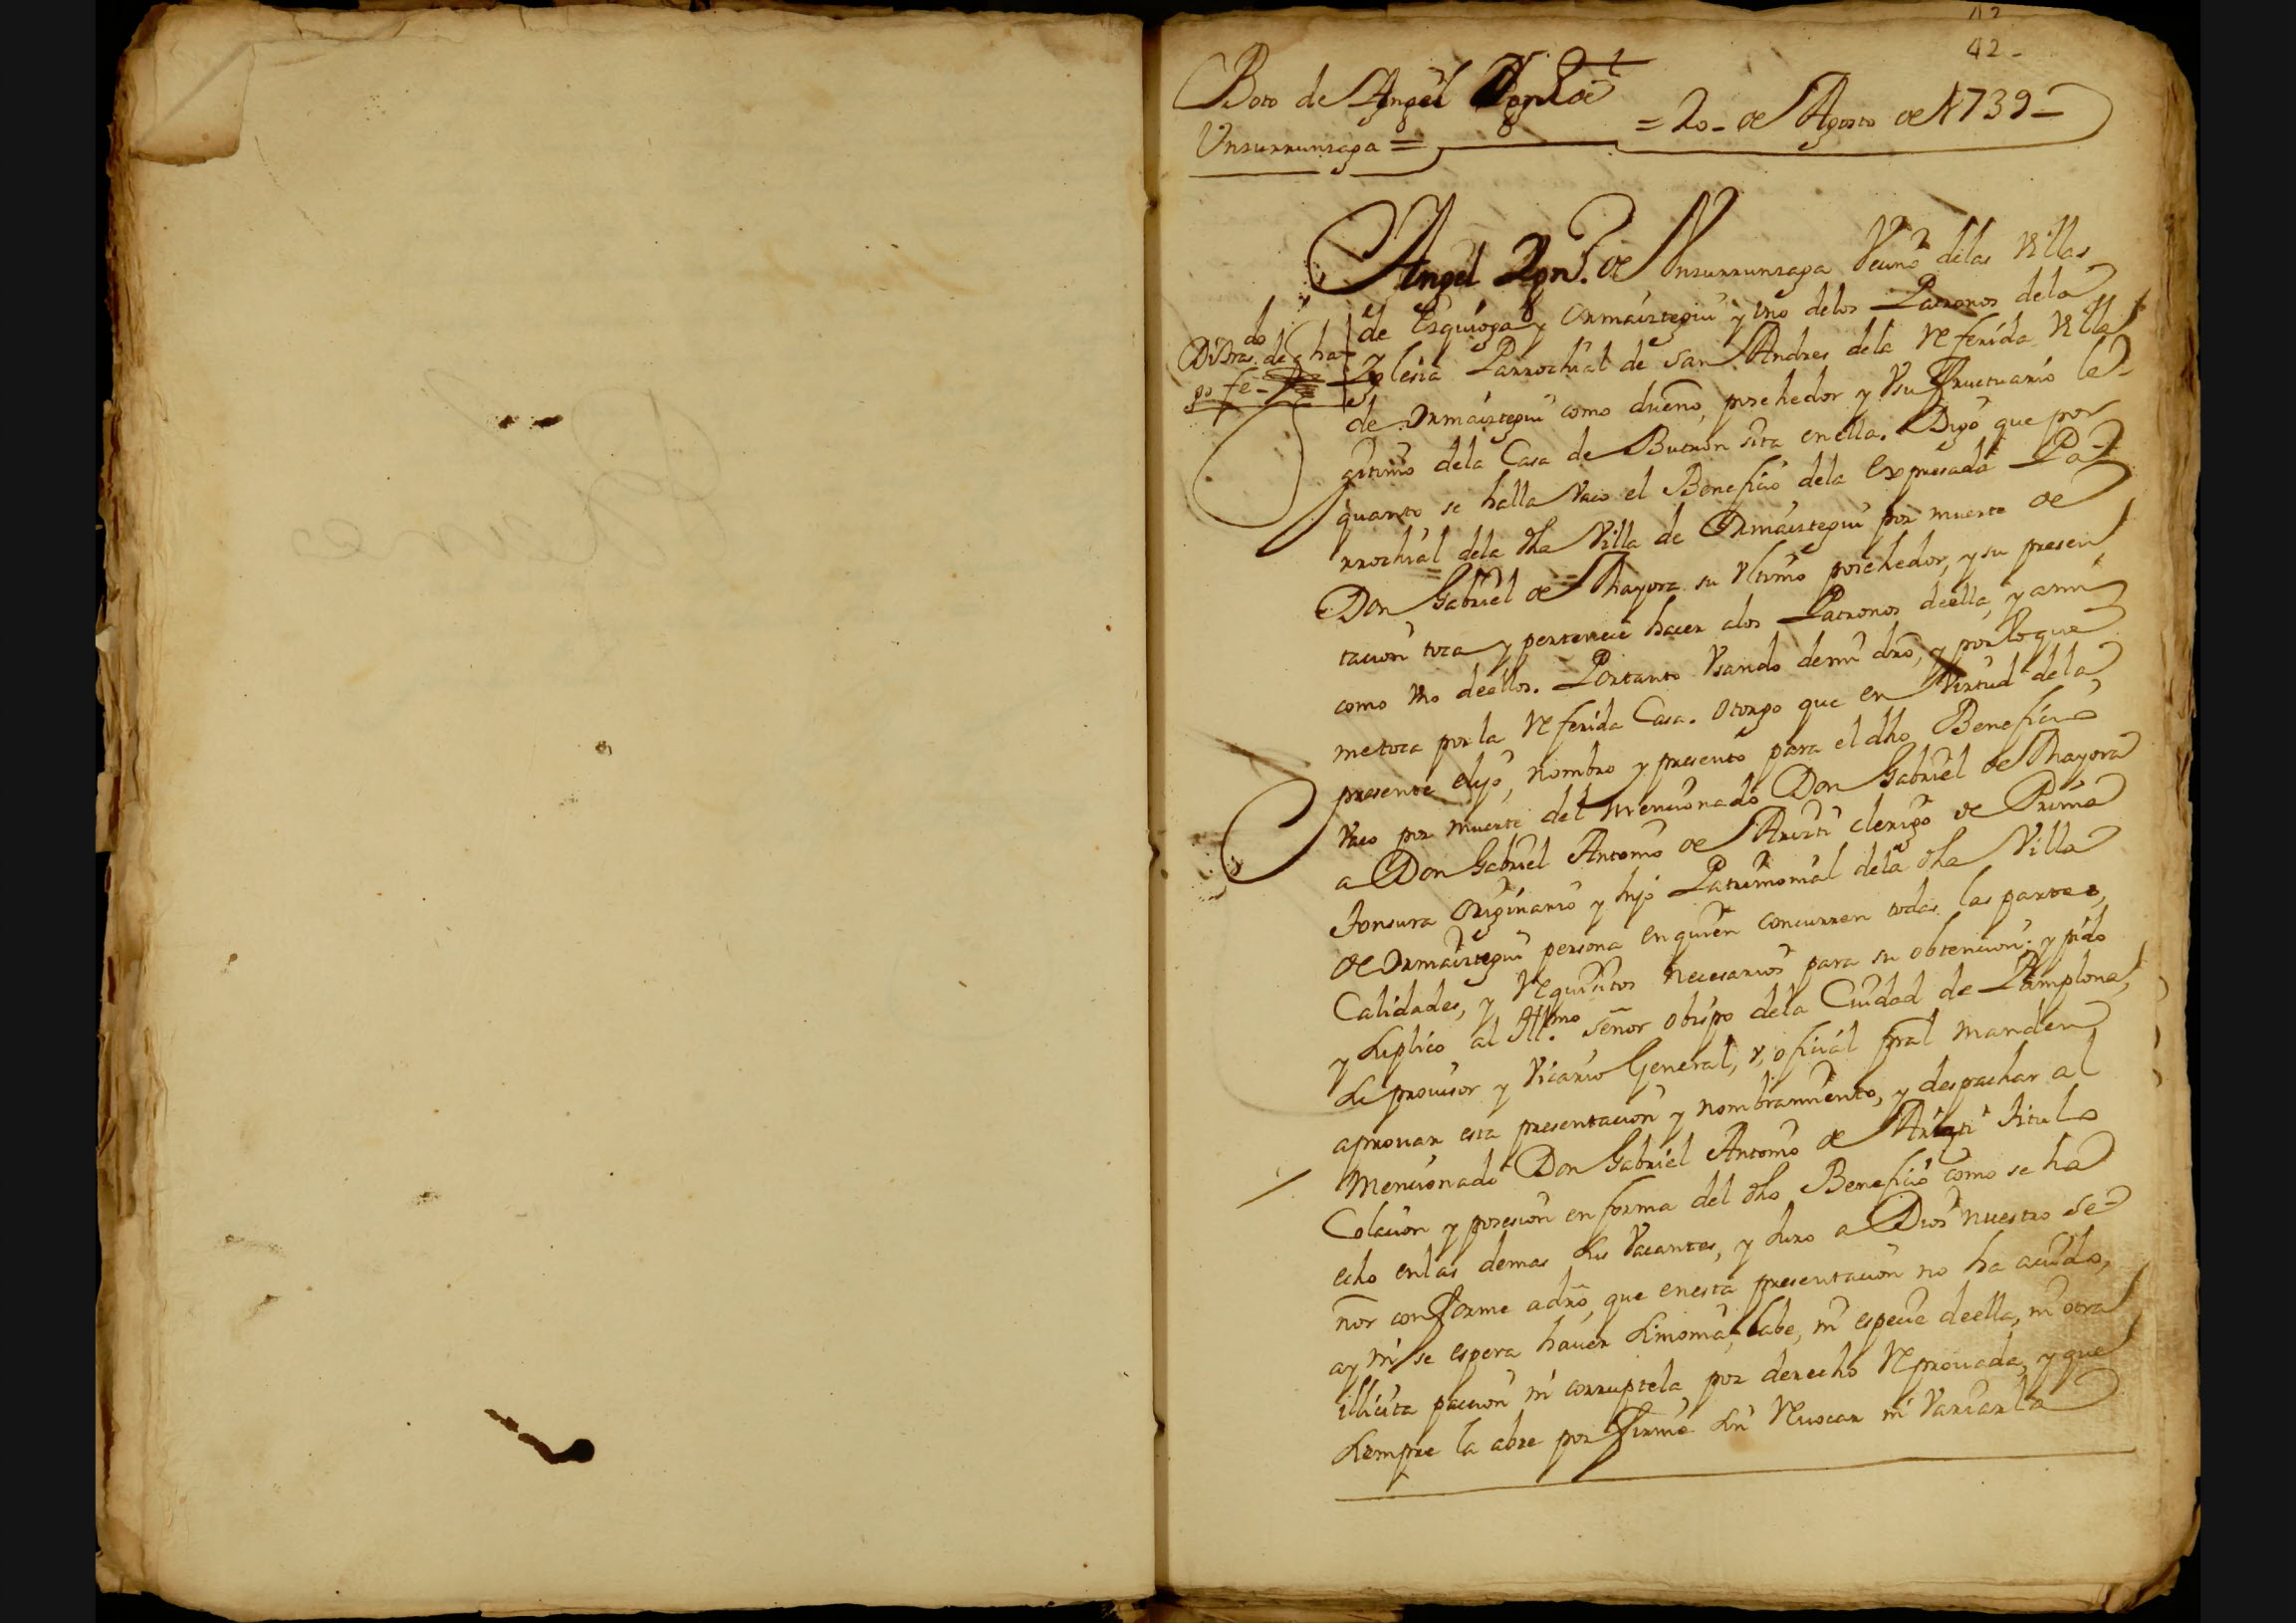 42
42-
Boto de Angel Ign.º de
Unzurrunzaga =
= 20- de Agosto de 1739-
Angel Ign.º de Unzurrunzaga Vecino delas Villas
de Ezquioga y Ormaiztegui y uno delos Patronos dela
Yglesia Parrochial de San Andres dela Referida Villa
de Ormaiztegui como dueño, posehedor y Usufructuario le-
gitimo dela Casa de Butron sita enella. Digo que por
quanto se halla Vaco el Beneficio dela Expresada Pa-
rrochial dela dha Villa de Ormaiztegui por muerte de
Don Gabriel de Mayora su Ultimo posehedor, y su presen
tacion toca y pertenece hacer alos Patronos deella, y ami
como uno deellos. Portanto Usando demi dro, y porloque
metoca por la Referida Casa. Otorgo que en Virtud dela
presente elijo, nombro y presento para el dho Beneficio
Vaco por muerte del mencionado Don Gabriel de Mayora
a Don Gabriel Antonio de Arizti clerigo de Prima
Tonsura Originario y hijo Patrimonial dela dha Villa
de Ormaiztegui persona enquien concurren todas las partes,
Calidades, y Requisitos necesarios para su obtencion: y pido
y Suplico al Ill.mo señor obispo dela Ciudad de Pamplona,
Su provisor y Vicario General, y, oficial pral manden
aprovar esta presentacion y nombramiento, y despachar al
Mencionado Don Gabriel Antonio de Arizti Titulo
Colacion y posesion en forma del dho Beneficio como se ha
echo enlas demas Sus Vacantes, y Juro a Dios nuestro Se-
ñor conforme adro, que enesta presentacion no ha acido,
ay ni se espera haver Simonia, Labe, ni especie deella, ni otra
illicita paccion ni corruptela por derecho Reprovada, y que
Siempre la abre por firme Sin Revocar ni Variarla